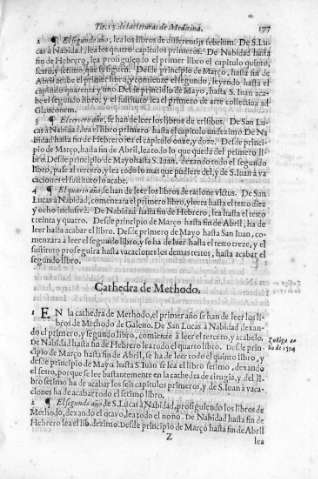 Tit. 15. de las letturas de Medicina. 177
2 ¶ El segundo año, lea los libros de differentijs febrium. De S. Lu-
cas à Nabidad, lea los quatro capitulos primeros. De Nabidad hasta
fin de Hebrero, lea prosiguiendo el primer libro el capitulo quinto,
sexto, y los que se siguen. Desde principio de Março, hasta fin de
Abril acabe el primer libro, y comiençe el segundo, leyendo hasta el
capitulo quarenta y vno. Desde principio de Mayo, hasta S. Iuan aca-
be el segundo libro; y el substituto lea el primero de arte
Glauconem.
3 ¶ El tercero año, se han de leer los libros de crisibus. De San Lu-
cas à Nabidad, lea el libro primero hasta el capitulo De Na
bidad hasta fin de Hebrero el capitulo onze, y doze. Desde princi-
pio de Março, hasta fin de Abril, lea todo lo que queda del primero li-
bro. Desde principio de Mayo hasta S. Iuan, dexando todo el segundo
libro, passe al tercero, y lea todo lo mas que pudiere del, y de S. Iuan à va-
caciones el substituto lo acabe.
4 ¶ El quarto año, se han de leer los libros de ratione victus. De San
Lucas à Nabidad, començara el primero libro, y leera hasta el texto diez
y ocho inclusiue. De Nabidad hasta fin de Hebrero, lea hasta el texto
treinta y quatro. Desde principio de Março hasta fin de Abril, ha de
leer hasta acabar el libro. Desde primero de Mayo hasta San Iuan, co-
mençara à leer el segundo libro, y se ha de leer hasta el texto treze, y el
substituto proseguira hasta vacaciones los demas textos, hasta acabar el
segundo libro.
Cathedra de Methodo.
1 EN la cathedra de Methodo, el primer año se han de leer los li-
bros de Methodo de Galeno. De San Lucas à Nabidad dexan-
do el primero, y segundo libro, comiençe à leer el tercero, y acabelo.
De Nabidad, hasta fin de Hebrero lea todo el quarto libro. Desde prin-
cipio de Março hasta fin de Abril, se ha de leer todo el quinto libro, y
desde principio de Mayo hasta S. Iuan se lea el libro setimo, dexando
el sexto, porque se lee bastantemente en la cathedra de cirugia, y del li-
bro setimo ha de acabar los seis capitulos primeros, y de S. Iuan à vaca-
ciones ha de acabar todo el setimo libro.
¶ El segundo año de S. Lucas à Nabidad, prosiguiendo los libros de
Methodo, dexando el octauo, lea todo el nono. De Nabidad hasta fin de
Hebrero lea el libro dezimo. Desde principio de Março hasta fin de Abril
Z
lea